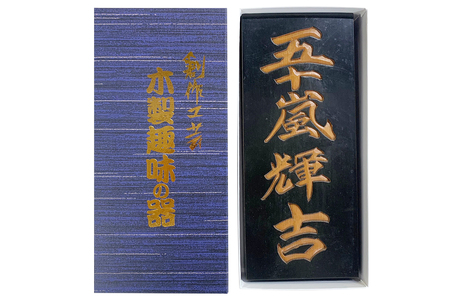 創作工芸
木製趣味の器
五十嵐輝吉